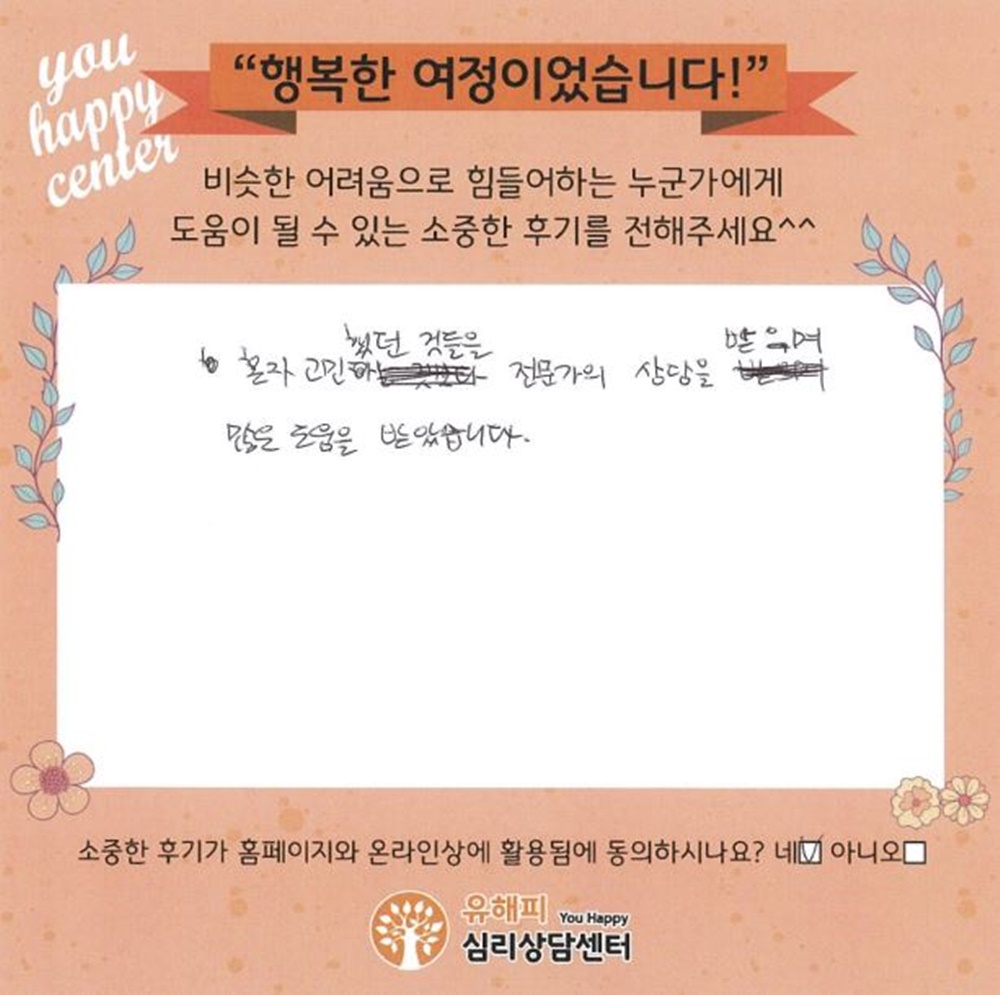 you
happy
center
“행복한 여정이었습니다!”
비슷한 어려움으로 힘들어하는 누군가에게
도움이 될 수 있는 소중한 후기를 전해주세요^^
했던 것들을 받으며
혼자 고민 전문가의 상담을
많은 도움을 받았습니다.
소중한 후기가 홈페이지와 온라인상에 활용됨에 동의하시나요? 네 아니오
유해피 You Happy
심리상담센터